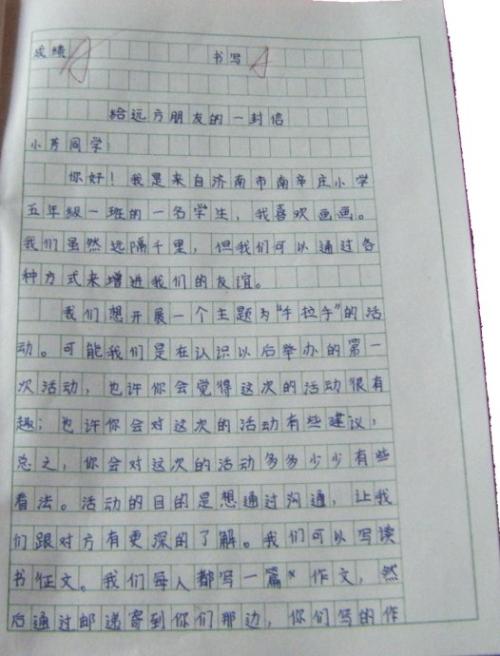 成绩 A 书写 A
给远方朋友的一封信
小芳同学:
你好!我是来自济南市南辛庄小学
五年级一班的一名学生,我喜欢画画。
我们虽然远隔千里,但我们可以通过各
种方式来增进我们的友谊。
我们想开展一个主题为“手拉手”的活
动。可能我们是在认识以后举办的第一
次活动,也许你会觉得这次的活动很有
趣;也许你会对这次的活动有些建议;
总之,你会对这次的活动多多少少有些
看法。活动的目的是想通过沟通,让我
们跟对方有更深的了解。我们可以写读
书征文。我们每人都写一篇 作文,然
后通过邮递寄到你们那边,你们写的作